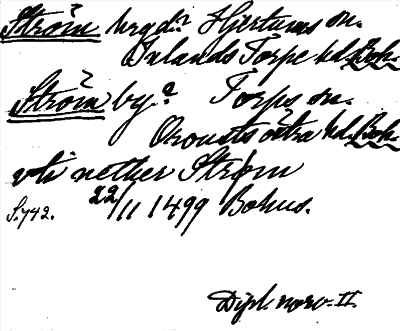 Ström hrgd? Hjertums sn.
Inlands Torpe hd. Boh.
Ström by? Torps sn.
Orousts östra hd. Boh.
vti nether Strøm
S. 742. 22/11 1499 Bohus.
Dipl. norv. II.